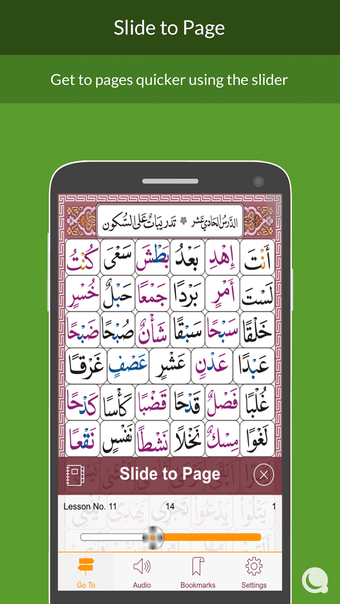 Slide to Page
Get to pages quicker using the slider
الدَّرْسُ الْحَادِيْ عَشَرَ تَدْرِيْبَاتٌ عَلَى السُّكُوْنِ
أَنْتَ اِهْدِ بَعْدُ بَطْشَ سَعْىَ كُنْتُ
لَسْتَ أَمْرٍ بَرْدًا جَمْعًا حَبْلٌ خُسْرٍ
خَلْقًا سَبْحًا سَبْقًا شَأْنٌ صُبْحًا ضَبْحًا
عَبْدًا عَدْنٍ عَشْرٍ عَصْفٍ غَرْقًا
غُلْبًا فَصْلٌ قَدْحًا قَضْبًا كَأْسًا كَدْحًا
لَغْوًا مِسْكٌ نَخْلًا نَشْطًا نَفْسٌ نَقْعًا
Slide to Page
Lesson No. 11 14 1
Go To Audio Bookmarks Settings